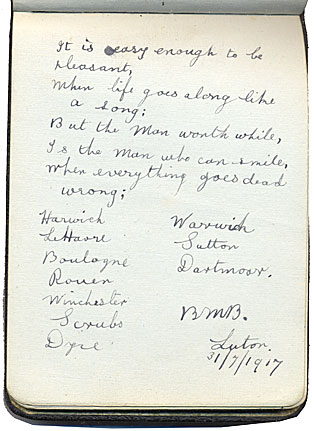 It is easy enough to be
pleasant,
When life goes along like
a song;
But the Man worth while,
Is the Man who can smile,
When everything goes dead
wrong;
Harwich
LeHavre
Boulogne
Rouen
Winchester
Scrubs
Dyce
Warwick
Sutton
Dartmoor.
BMB.
Luton.
31/7/1917